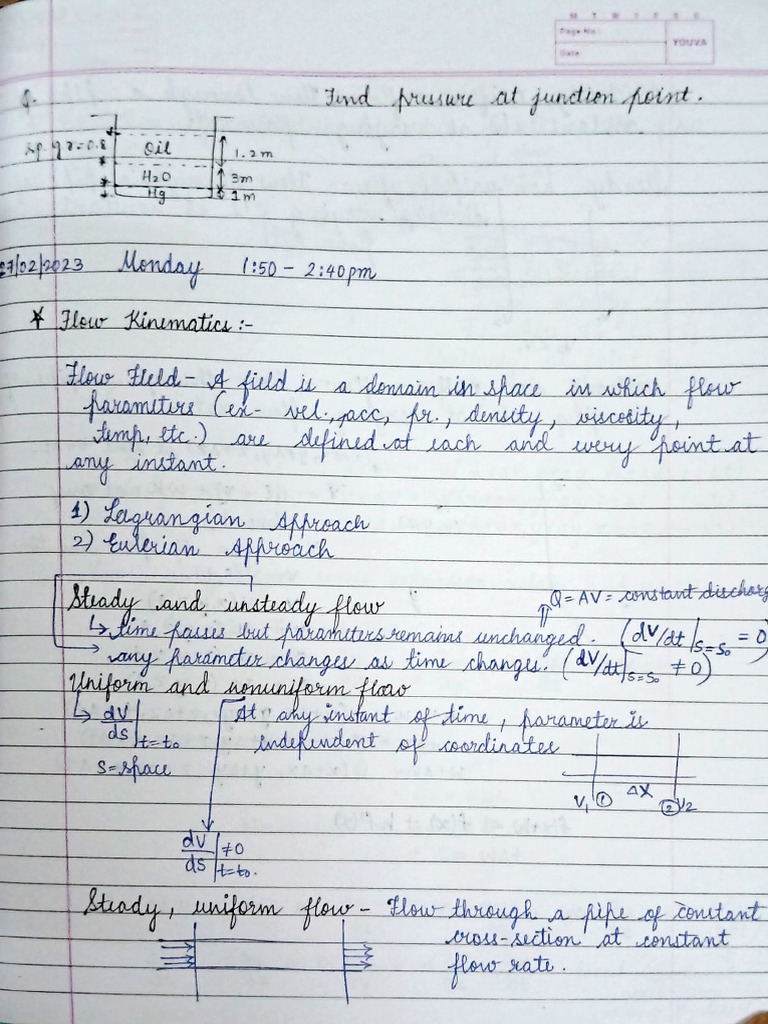 M T W T F S S
Page No.:
Date:
YOUVA
Q. Find pressure at junction point.
sp. gr = 0.8
Oil
1.2m
H2O
3m
Hg
1m
27/02/2023 Monday 1:50 - 2:40pm
* Flow Kinematics :-
Flow Field - A field is a domain in space in which flow
parameters (ex- vel., acc, pr., density, viscosity,
temp, etc.) are defined at each and every point at
any instant.
1) Lagrangian Approach
2) Eulerian Approach
Q = AV = constant discharg
Steady and unsteady flow
↳ time passes but parameters remains unchanged. (dV/dt|s=s₀ = 0)
→ any parameter changes as time changes. (dV/dt|s=s₀ ≠ 0)
Uniform and nonuniform flow
↳ dV/ds|t=t₀ At any instant of time, parameter is
independent of coordinates
S = space
V₁ ① ΔX ② V₂
dV/ds|t=t₀ ≠ 0
Steady, uniform flow - Flow through a pipe of constant
cross-section at constant
flow rate.